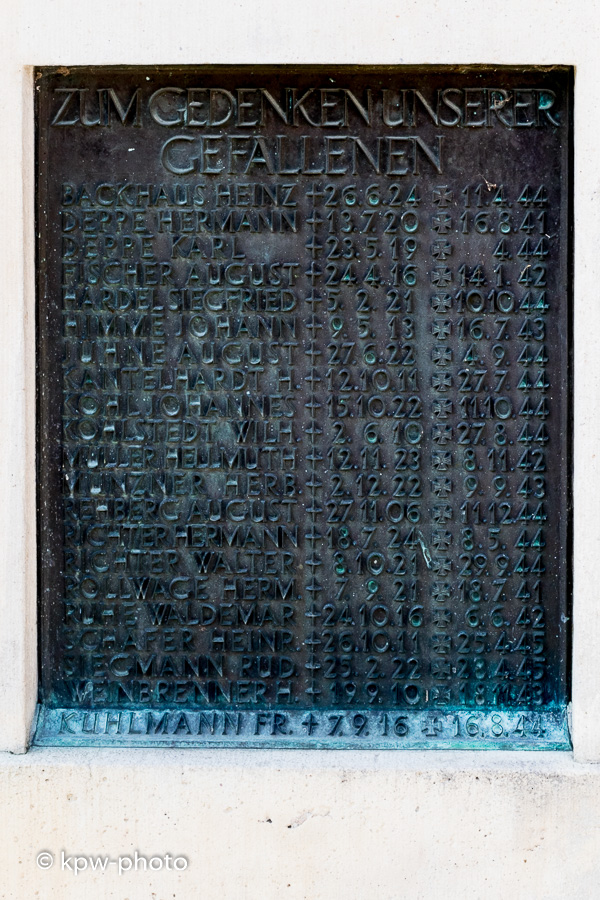 ZUM GEDENKEN UNSERER
GEFALLENEN
BACKHAUS HEINZ + 26.6.24 ✠ 11.4.44
DEPPE HERMANN + 13.7.20 ✠ 16.8.41
DEPPE KARL + 23.5.19 ✠ 4.44
FISCHER AUGUST + 24.4.16 ✠ 14.1.42
HARDEL SIEGFRIED + 5.2.21 ✠ 10.10.44
HIMME JOHANN + 9.5.13 ✠ 16.7.43
JUHNE AUGUST + 27.6.22 ✠ 4.9.44
KANTELHARDT H. + 12.10.11 ✠ 27.7.44
KOHL JOHANNES + 15.10.22 ✠ 11.10.44
KOHLSTEDT WILH. + 2.6.10 ✠ 27.8.44
MÜLLER HELLMUTH + 12.11.23 ✠ 8.11.42
MÜNZNER HERB. + 2.12.22 ✠ 9.9.43
REHBERG AUGUST + 27.11.06 ✠ 11.12.44
RICHTER HERMANN + 18.7.24 ✠ 8.5.44
RICHTER WALTER + 8.10.21 ✠ 29.9.44
ROLLWAGE HERM. + 7.9.21 ✠ 18.7.41
RUHE WALDEMAR + 24.10.16 ✠ 6.6.42
SCHÄFER HEINR. + 26.10.11 ✠ 25.4.45
SIEGMANN RUD. + 25.2.22 ✠ 18.4.45
WEINBRENNER H. + 19.9.10 ✠ 18.11.43
KUHLMANN FR. + 7.9.16 ✠ 16.8.44
© kpw-photo